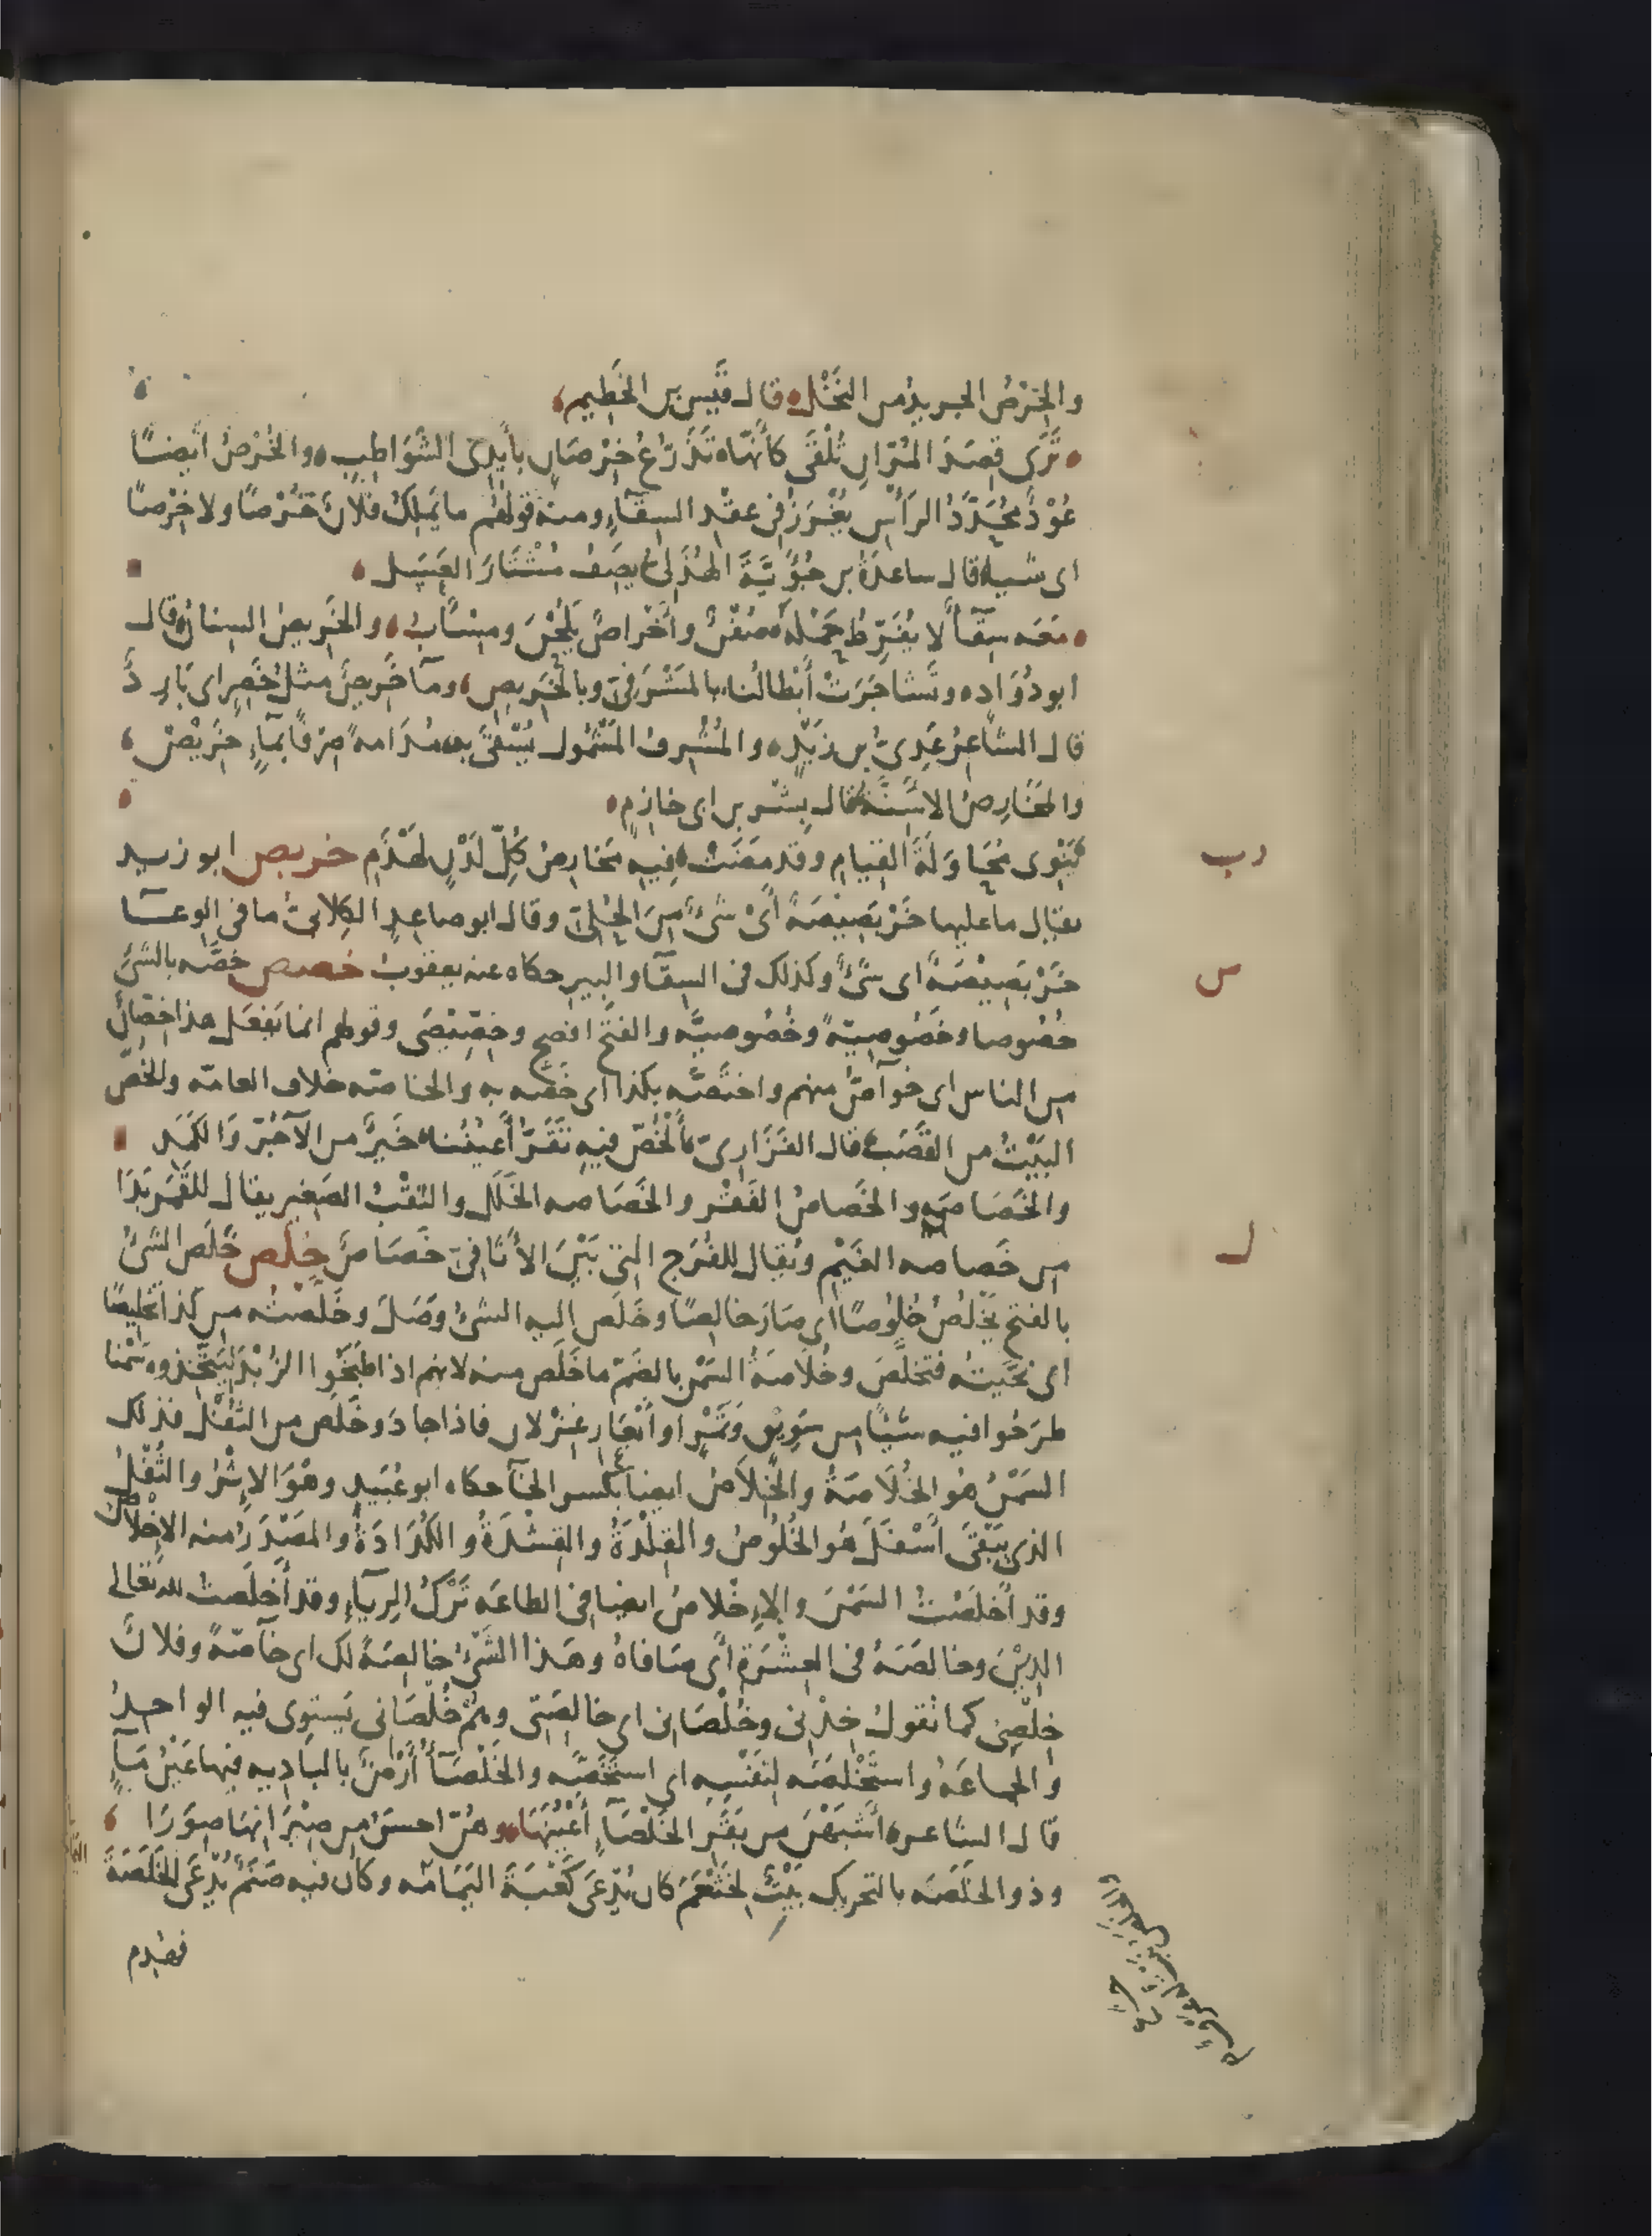 والخِرْصُ الجريدُ من النَّخْلِ قال قَيْس بن الخَطِيمِ
تَرَى قِصَدَ المُرّانِ تُلْقَى كأنّها تَذَرُّعُ خِرْصَانٍ بأَيْدِى الشَّوَاطِبِ والخُرْصُ أيضًا
عُوْدٌ مُحَدَّدُ الرَأْسِ يُغْرَزُ فى عقْدِ السِقَاءِ ومنه قولهُم ما يَمْلِكُ فلانٌ خُرْصًا ولا خِرْصًا
اى شيا قال ساعدَةُ بن جُؤَيَّةَ الهُذَلىُّ يصفُ مُشْتَارَ العَسَلِ
مَعَه سِقَآ لا يُفَرِّطُ حَمْلَهُ صُفْنٌ وأَخْراصٌ يَلُحْنَ ومِسْأَبُ والخَرِيصُ السِنانُ قال
ابو دُوَادٍ وتَشاجَرَتْ أَبْطالُنا بالمَشْرَفِىِّ وبالخَرِيصِ ومآ خَرِيصٌ مثلُ خَصِرٍ اى بَارِدٌ
قال الشاعِرُ عَدِىُّ بن زَيْدٍ والمُشْرِفُ المَشْمُولُ يُسْقَى به مُدَامةً صِرْفًا بمآءٍ خَرِيْصْ
والمَخَارِصُ الاسِنَّةُ قال بِشْر بن ابى خازِمٍ
يَنْوِى مُحَاوَلَةَ القِيَامِ وقد مضَتْ فِيهِ مَخارِصُ كُلِّ لَدْنٍ لَهْذَمِ خربص ابو زيد
رب
يقال ما عليها خَرْبَصِيْصَةٌ أَىْ شَىْءٌ مِنَ الحُلِىِّ وقال ابو صاعدٍ الكِلابىُّ ما فى الوعآ
خَرْبَصِيْصَةٌ اى شَىْءٌ وكذلك فى السِقآ والبير حكاه عنه يعقوبُ خصص خصَّه بالشىْءِ
س
خُصُوصا وخَصُوصِيّةً وخُصُوصيَّة والفتح افصح وخِصِّيْصَى وقولهم انما يَفعَل هذا خُصّانٌ
من الناس اى خوآصُّ منهم واختصَّه بكذا اى خَصّه به والخاصّة خلاف العامّه والخُصُّ
البَيْتُ من القَصَب قال الفَزَارىّ الخُصُّ فيهِ تَقَرُّ أَعيُنُنا خَيْرٌ من الآجُرِّ وَالكَمَدِ
والخَصَاصَةُ والخَصاصُ الفَقْر والخَصَاصه الخَلَلُ والثقْبُ الصَغير يقال للقَمَر بَدَا
من خَصاصه الغَيْمِ ويُقال للفُرَجِ التى بَيْنَ الأثَافِىّ خَصَاصٌ خلص خَلَص الشىْءُ
ل
بالفتح يَخْلُصُ خُلُوصًا اى صارَ خالِصًا وخَلَص إليه الشىْءُ وَصَلَ وخَلَّصْتُه من كذا تخليصًا
اى نَحَّيتُه فتخلَّصَ وخُلاَصَةُ السَّمْنِ بالضَمّ ما خَلَص منه لانهم اذا طَبَخُوا الزُبْدَ ليَتَّخِذوه سَمْنا
طَرَحُوا فيه شَيْئًا من سَوِيْقٍ وتَمْرٍ او أَبْعَارِ غِزْلانٍ فاذا جادَ وخَلَص من الثُفْل فذلك
السَمْنُ هُوَ الخُلاَصَةُ والخِلاَصُ ايضا بكسر الخآ حكاه ابو عُبَيدٍ وهُوَ الإثْرُ والثُفْلُ
الذى يَبْقَى أَسْفَلَ هُوَ الخُلُوصُ والقِلْدَةُ والقِشْدَةُ والكُدَادَةُ والمَصْدَرُ منه الاخْلاصُ
وقد أَخْلَصْتُ السَمْنَ والإِخْلاصُ ايضا فى الطاعَه تَرْكُ الرِيآءِ وقد أَخلَصْتُ لله تعالى
الدِيْنَ وخالصَهُ فى العِشْرَةِ أى صَافاهُ وهَذا الشَىْءُ خالِصَةٌ لك اى خآصّةً وفلانٌ
خِلْصِى كما تقولُ خِدْنى وخُلْصَانى اى خالِصَتِى وهُمْ خُلْصَانى يَستوِى فيه الواحِدُ
والجماعَةُ واستَخْلصَه لنفَسِهِ اى استَخَصَّه والخَلْصَآءُ أَرْضٌ بالبادِيه فيها عَيْنُ مَآءٍ
قال الشاعر أَشْبَهْنَ من بَقَرِ الخَلْصَآءِ أَعْيُنَهَا وهُنّ احسَنُ من صِيْرَانِهَا صِوَرَا
وذو الخَلَصَه بالتحريك بَيْتٌ لخَثْعَمَ كان يُدْعَى كَعْبَةَ اليَمَامَه وكان فيه صَنَمٌ يُدْعَى الخَلَصَةَ
فهُدِم